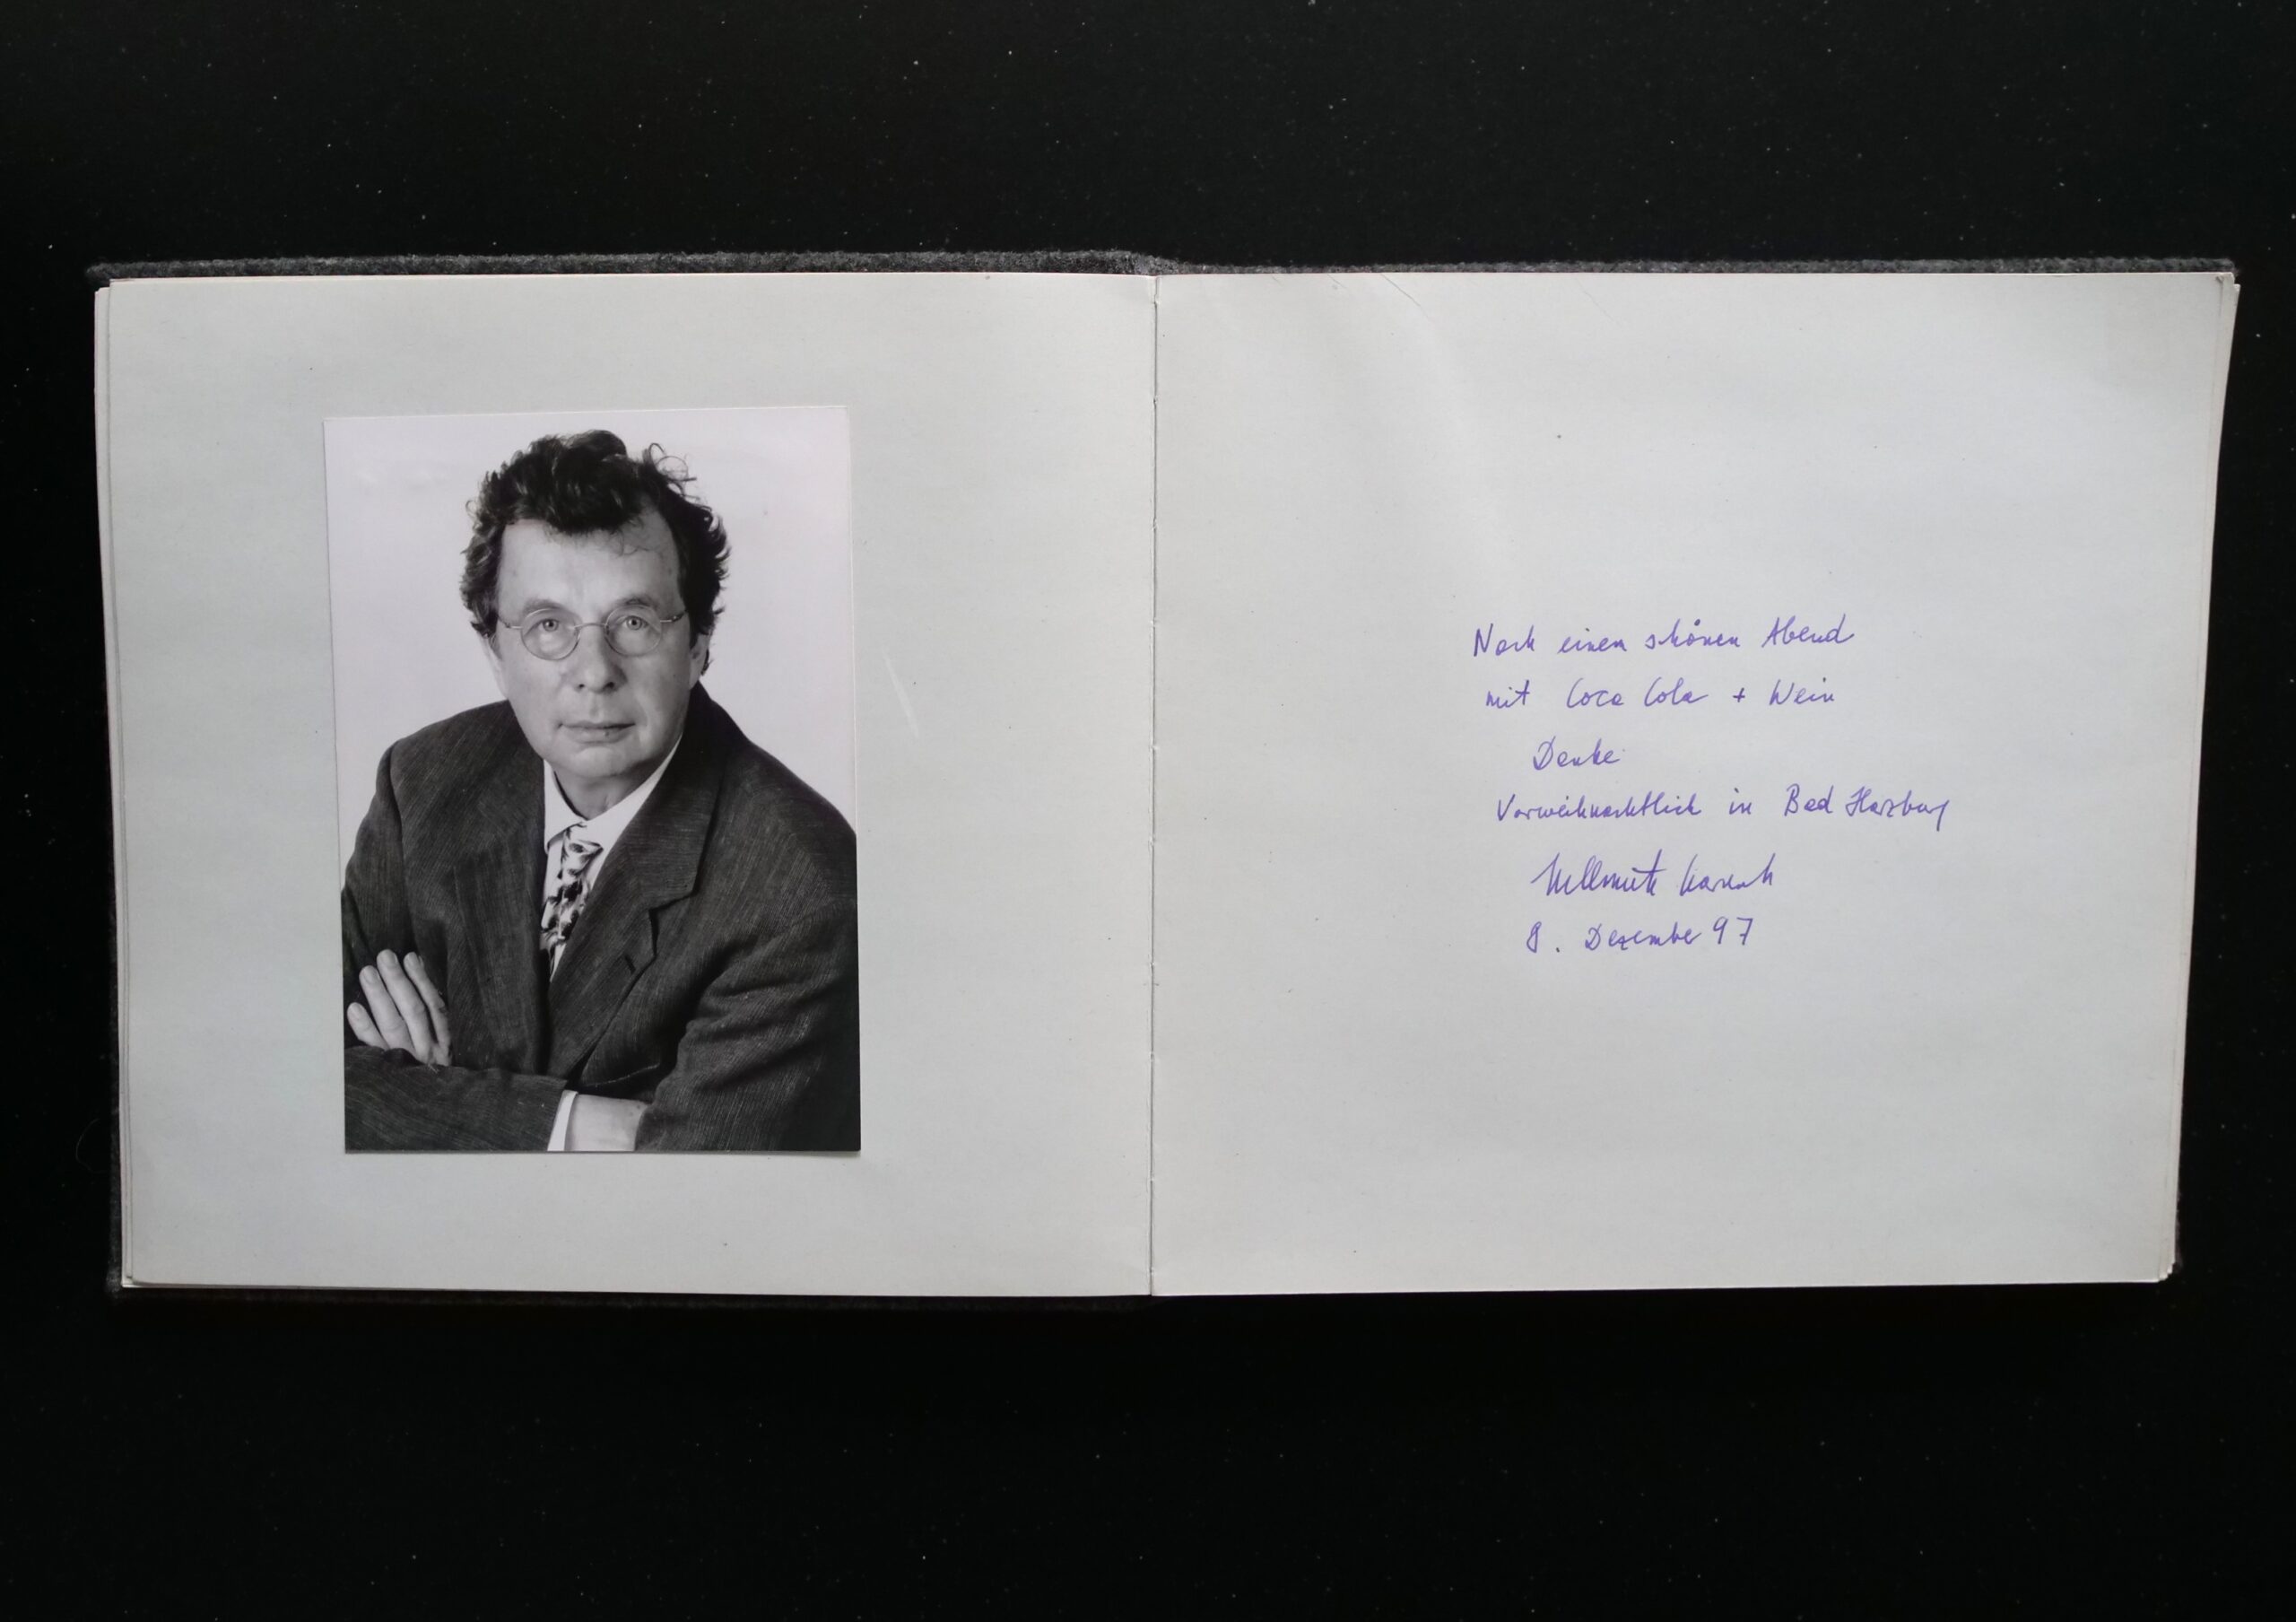 Nach einem schönen Abend
mit Coca Cola + Wein
Danke
Vorweihnachtlich in Bad Harzburg
Hellmuth Karasek
8. Dezember 97